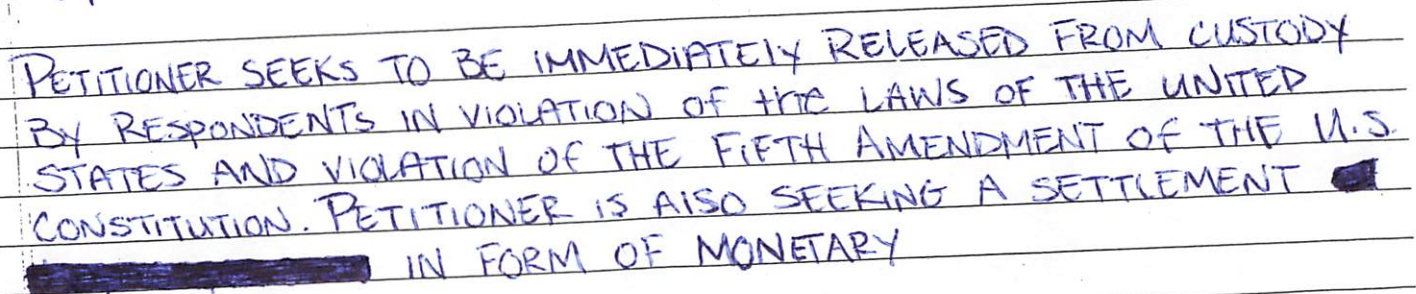 PETITIONER SEEKS TO BE IMMEDIATELY RELEASED FROM CUSTODY
BY RESPONDENTS IN VIOLATION OF THE LAWS OF THE UNITED
STATES AND VIOLATION OF THE FIFTH AMENDMENT OF THE U.S.
CONSTITUTION. PETITIONER IS ALSO SEEKING A SETTLEMENT
IN FORM OF MONETARY